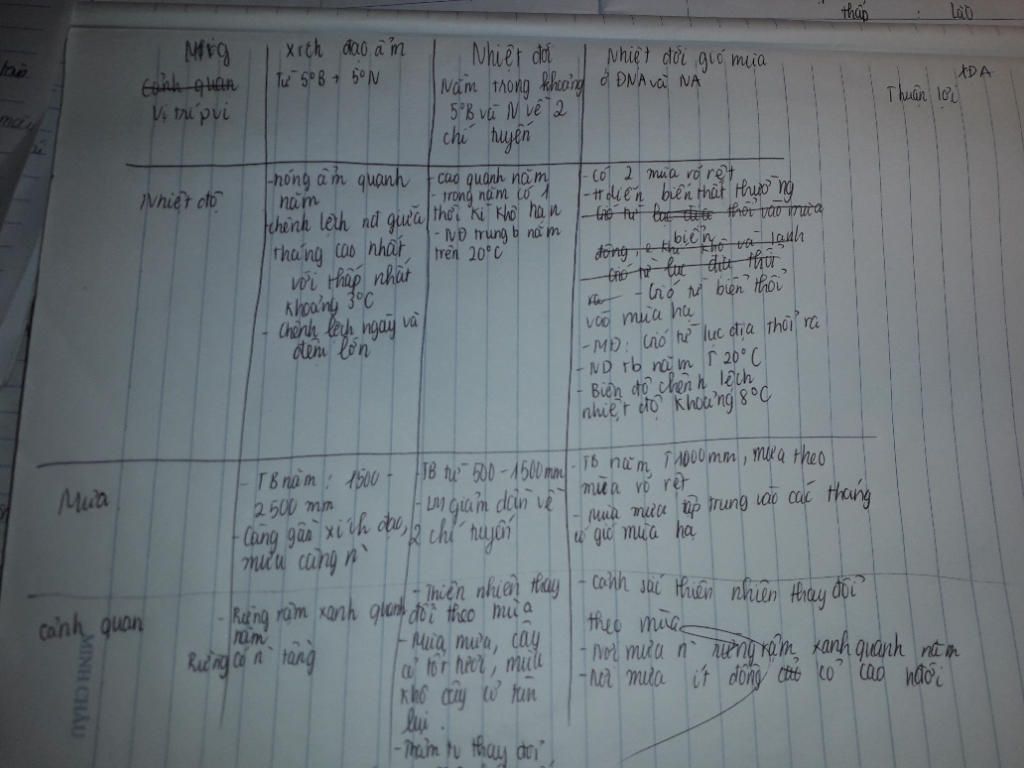 thấp : Lào
XDA
Thuận lợi
Cảnh quan
Vị trí pvi
xích đạo ẩm
Từ 5°B → 5°N
Nhiệt đới
Nằm trong khoảng
5°B và N về 2
chí tuyến
Nhiệt đới gió mùa
ở ĐNA và NA
Nhiệt độ
- nóng ẩm quanh
năm
chênh lệch nđ giữa
tháng cao nhất
với thấp nhất
khoảng 3°C
- chênh lệch ngày và
đêm lớn
- cao quanh năm
- trong năm có 1
thời kì khô hạn
- NĐ trung b năm
trên 20°C
- có 2 mùa rõ rệt
- tt diễn biến thất thường
- Gió từ lục địa thổi vào mùa
đông, khô và lạnh
biển
- Gió từ lục địa thổi
ra - Gió từ biển thổi
vào mùa hạ
- MĐ: Gió từ lục địa thổi ra
- NĐ tb năm T 20°C
- Biên độ chênh lệch
nhiệt độ khoảng 8°C
Mưa
- TB năm: 1500 -
2500 mm
- Càng gần xích đạo,
mưa càng n`
- TB từ 500 - 1500 mm
- LM giảm dần về
2 chí tuyến
- TB năm T 1000mm, mưa theo
mùa rõ rệt
- Mùa mưa tập trung vào các tháng
có gió mùa hạ
cảnh quan
- Rừng rậm xanh quanh
năm
Rừng có n` tầng
- Thiên nhiên thay
đổi theo mùa
- Mùa mưa, cây
cỏ tốt tươi, mùa
khô cây cỏ tàn
lụi.
- Thảm tv thay đổi
- cảnh sắc thiên nhiên thay đổi
theo mùa
- nơi mưa n` rừng rậm xanh quanh năm
- nơi mưa ít đồng cỏ cao nhiệt đới
MINH CHÂU